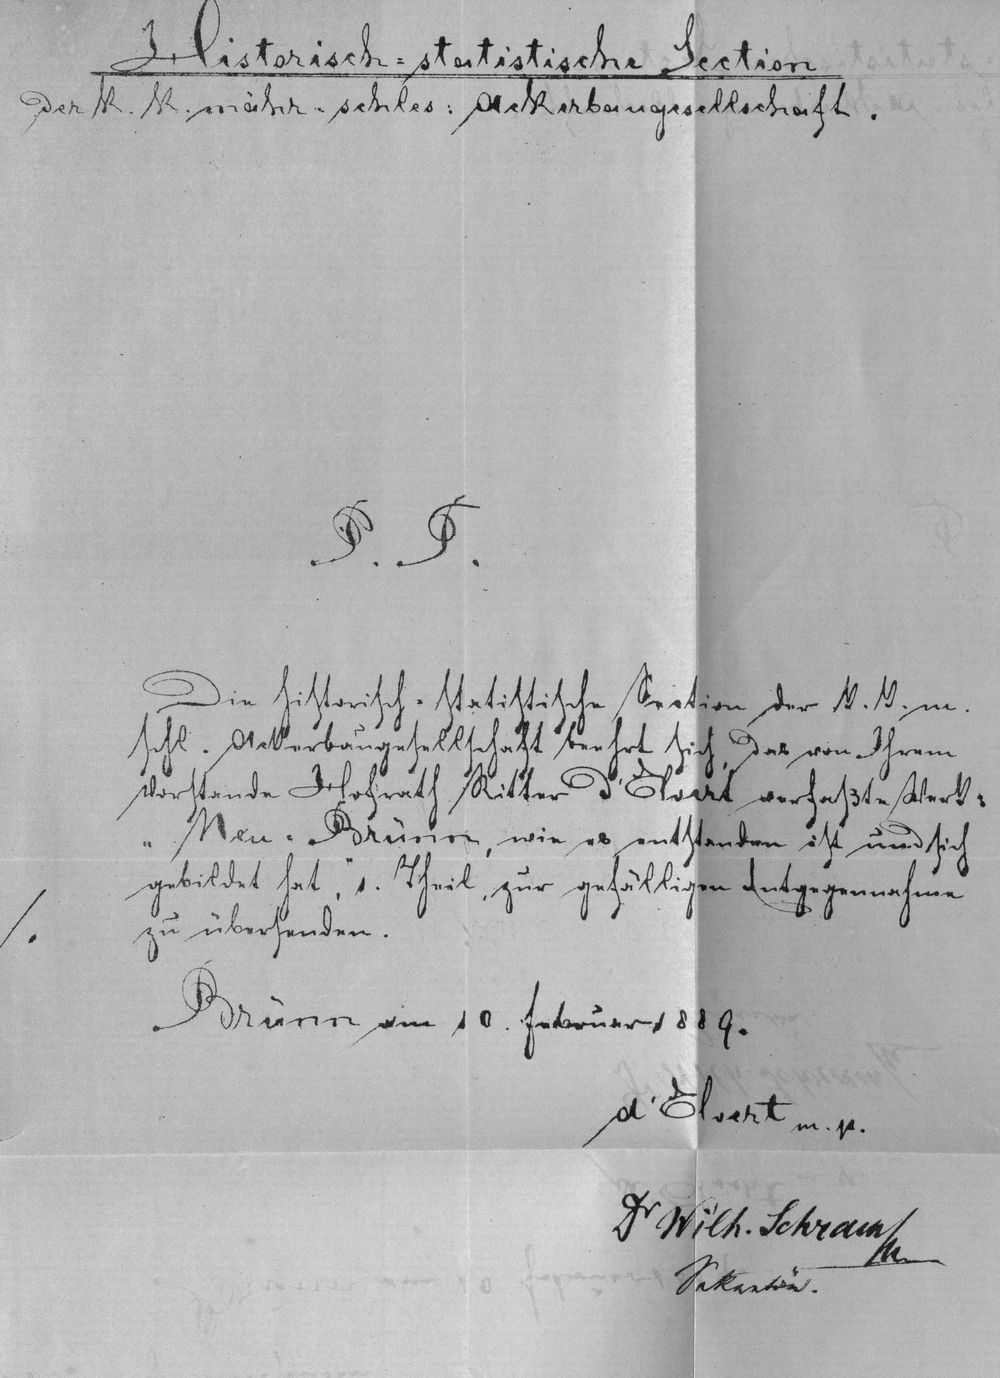 Historisch=statistische Section
der k. k. mähr.-schles: Ackerbaugesellschaft.
P. T.
Die historisch-statistische Section der k. k. m.
schl. Ackerbaugesellschaft beehrt sich, das von Ihrem
Vorstande Hofrath Ritter d'Elvert verfaßte Werk:
„Neu-Brünn, wie es entstanden ist und sich
gebildet hat," 1. Theil, zur gefälligen Entgegennahme
zu übersenden.
/.
Brünn am 10. Februar 1889.
d'Elvert m. p.
Dr Wilh. Schram
Sekretär.